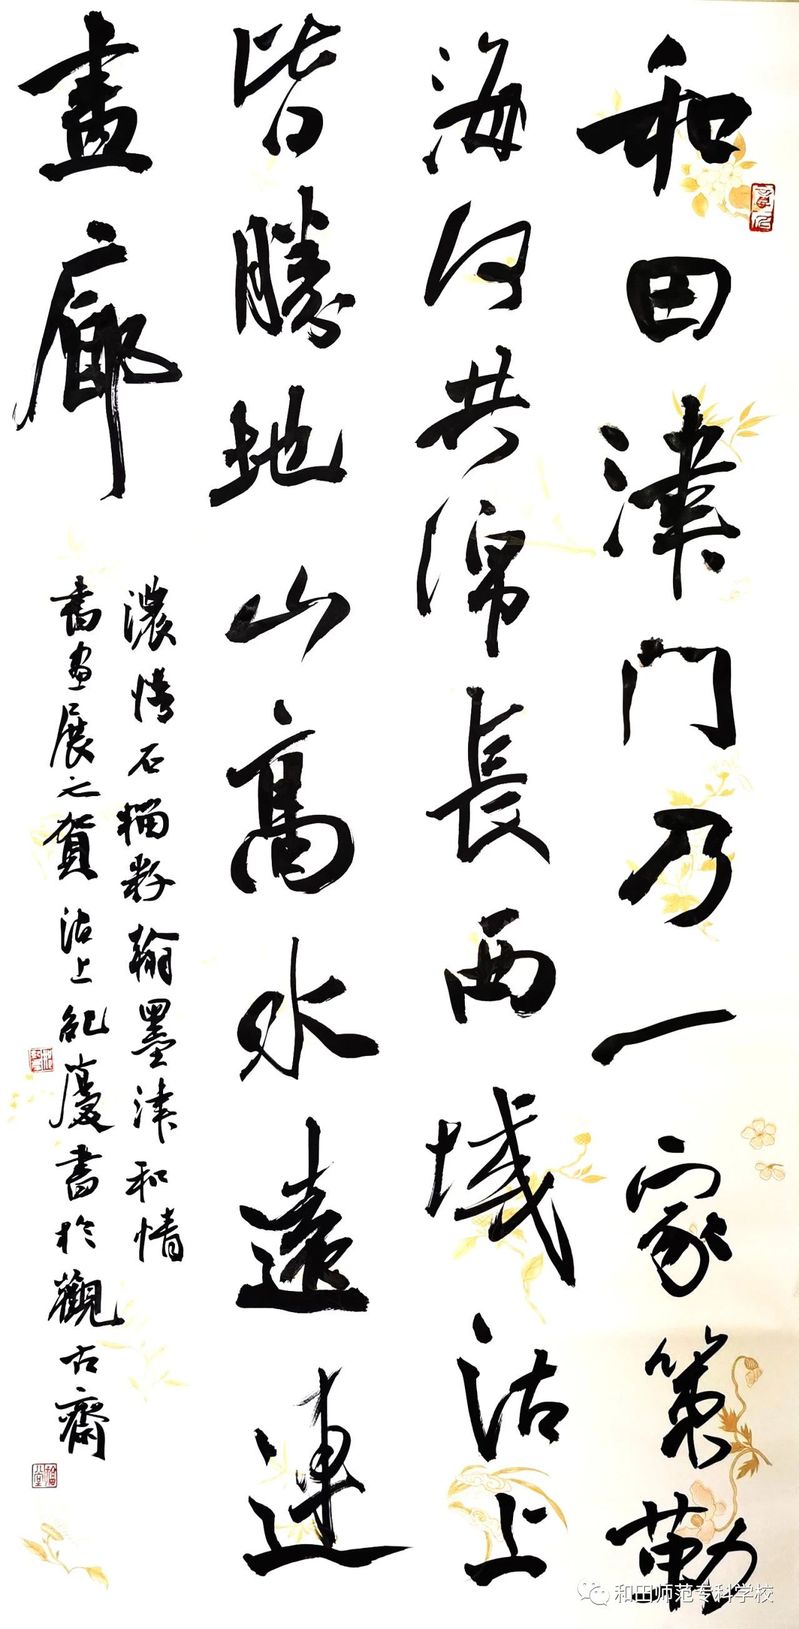 和田津门乃一家策勒
海河共涤長西域沽上
皆勝地山高水遠連
畫廊
濃情石榴籽翰墨津和情
書画展之賀沽上紀慶書於觀古齋
和田师范专科学校